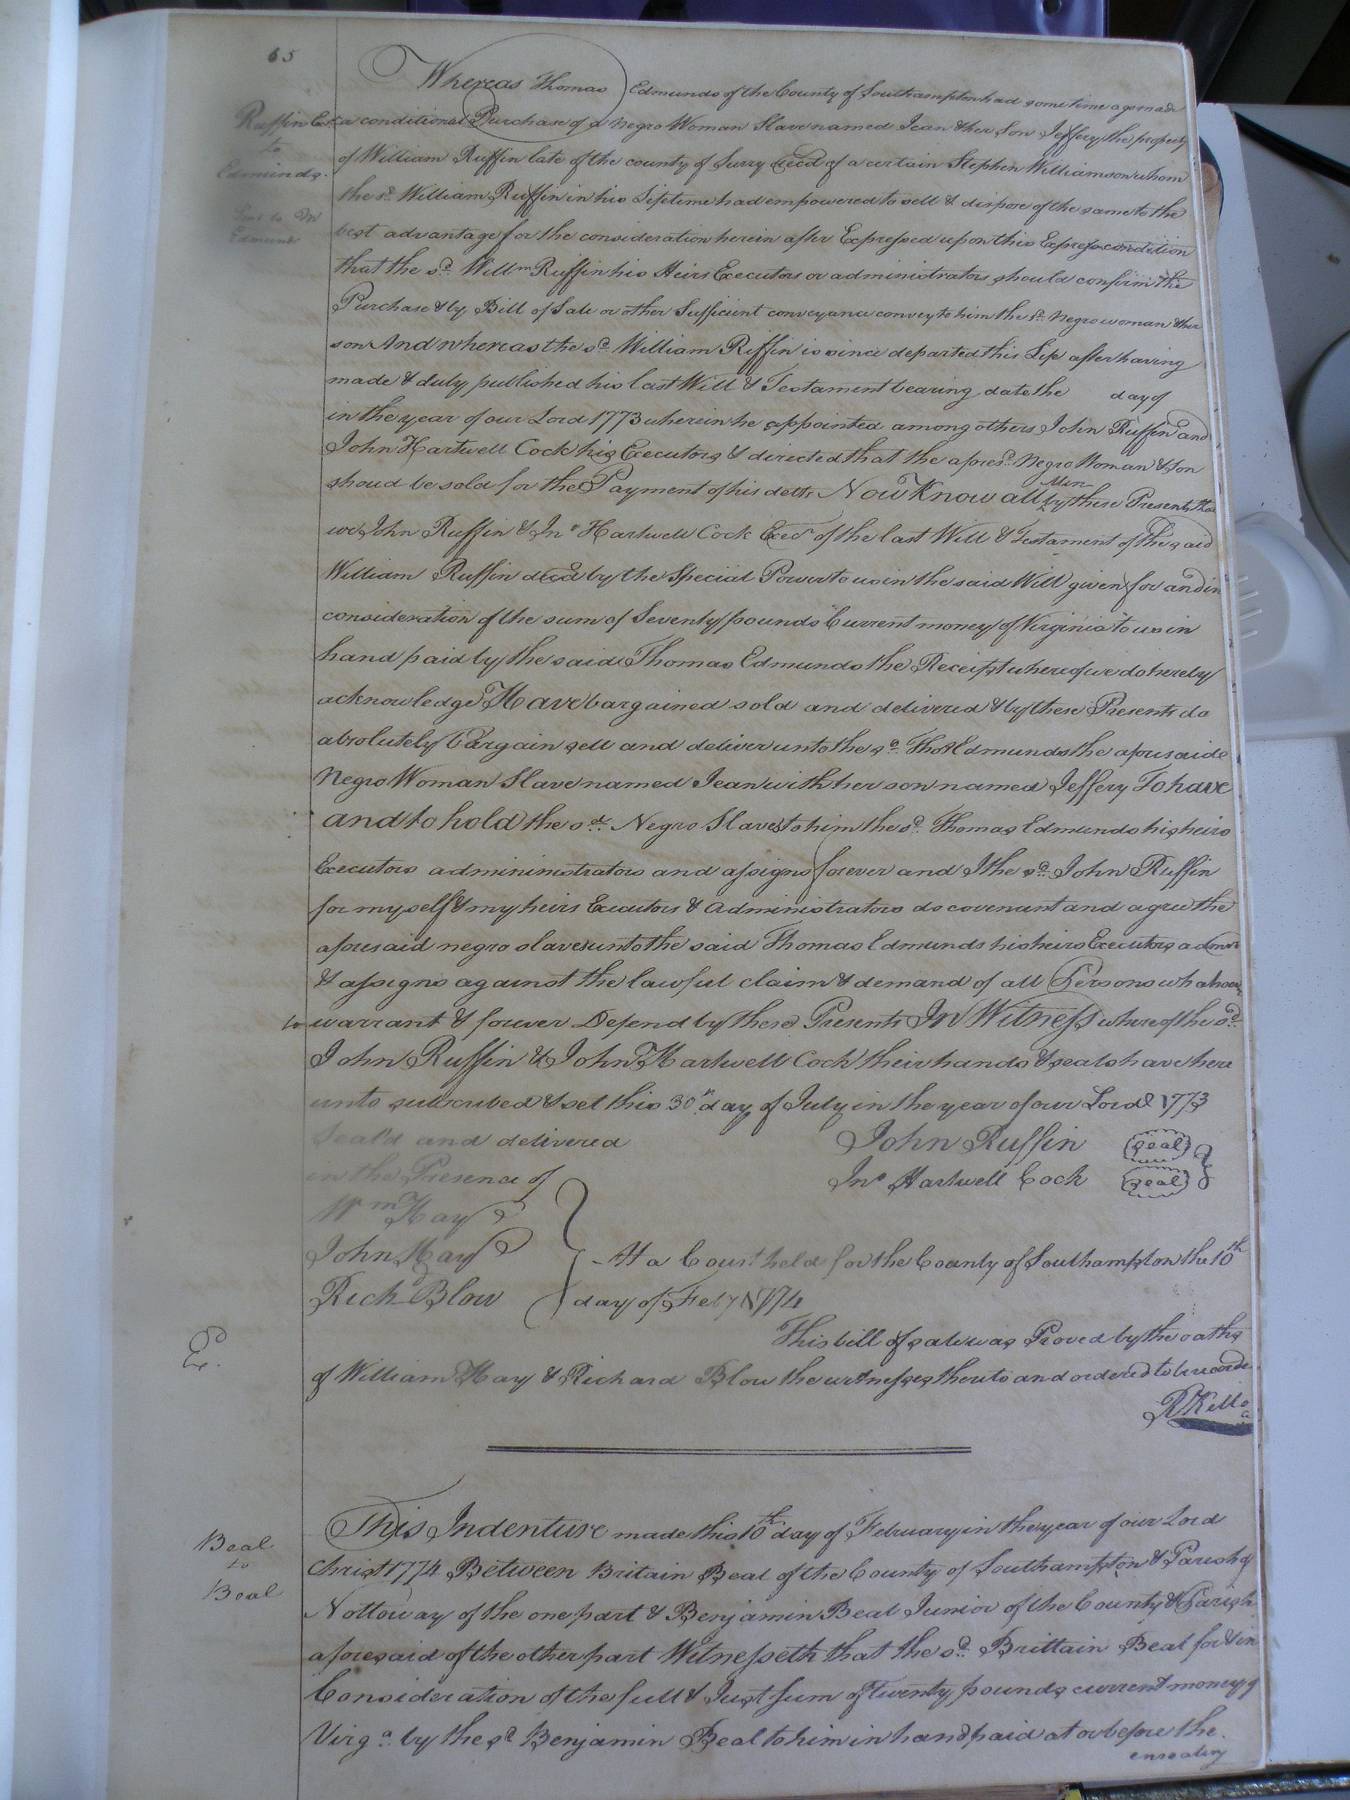 65
Whereas Thomas Edmunds of the County of Southampton had some time ago made
Ruffin Exr
to
Edmunds.
Sent to
Edmund
a conditional Purchase of a negro Woman Slave named Jean & her Son Jeffery the property
of William Ruffin late of the county of Surry decd of a certain Stephen Williamson whom
the sd. William Ruffin in his Lifetime had empowered to sell & dispose of the same to the
best advantage for the consideration herein after Expressed upon this Express condition
that the sd. Willm Ruffin his Heirs Executors or administrators should confirm the
Purchase & by Bill of Sale or other Sufficient conveyance convey to him the sd. Negro woman & her
son And whereas the sd. William Riffin is since departed this Life after having
made & duly published his last Will & Testament bearing date the day of
in the year of our Lord 1773 wherein he appointed among others John Ruffin and
John Hartwell Cock his Executors & directed that the aforesd. Negro Woman & Son
shoud be sold for the Payment of his debts Now Know all Men by these Presents that
we John Ruffin & Jno Hartwell Cock Execrs of the last Will & Testament of the said
William Ruffin decd by the Special Power to us in the said Will given for and in
consideration of the sum of Seventy pounds Current money of Virginia to us in
hand paid by the said Thomas Edmunds the Receipt whereof we do hereby
acknowledge Have bargained sold and delivered & by these Presents do
absolutely Bargain sell and deliver unto the sd. Thos Edmunds the aforesaid
Negro Woman Slave named Jean with her son named Jeffery To have
and to hold the sd. Negro Slaves to him the sd. Thomas Edmunds his heirs
Executors admininistrators and assigns forever and I the sd. John Ruffin
for myself & my heirs Executors & Administrators do covenant and agree the
aforesaid negro slaves unto the said Thomas Edmunds his heirs Executors admrs
& assigns against the lawful claim & demand of all Persons whatsoever
to warrant & forever Defend by these Presents In Witness whereof the sd.
John Ruffin & John Hartwell Cock their hands & seals have here
unto subscribed & set this 30th day of July in the year of our Lord 1773
Seal'd and delivered
in the Presence of
John Ruffin (seal)
Jno Hartwell Cock (seal)
Wm Hay
John Hay
Richd Blow
At a Court held for the County of Southampton the 10th
day of Feby 1774
This bill of sale was Proved by the oaths
E.
of William Hay & Richard Blow the witnesses thereto and ordered to be recorded
R Kello
Beal
to
Beal
This Indenture made this 10th day of February in the year of our Lord
Christ 1774 Between Britain Beal of the County of Southampton & Parish of
Nottoway of the one part & Benjamin Beal Junior of the County & Parish
aforesaid of the other part Witnesseth that the sd. Brittain Beal for & in
Consideration of the full & Just sum of Twenty pounds current money of
Virga. by the sd Benjamin Beal to him in hand paid at or before the
ensealing